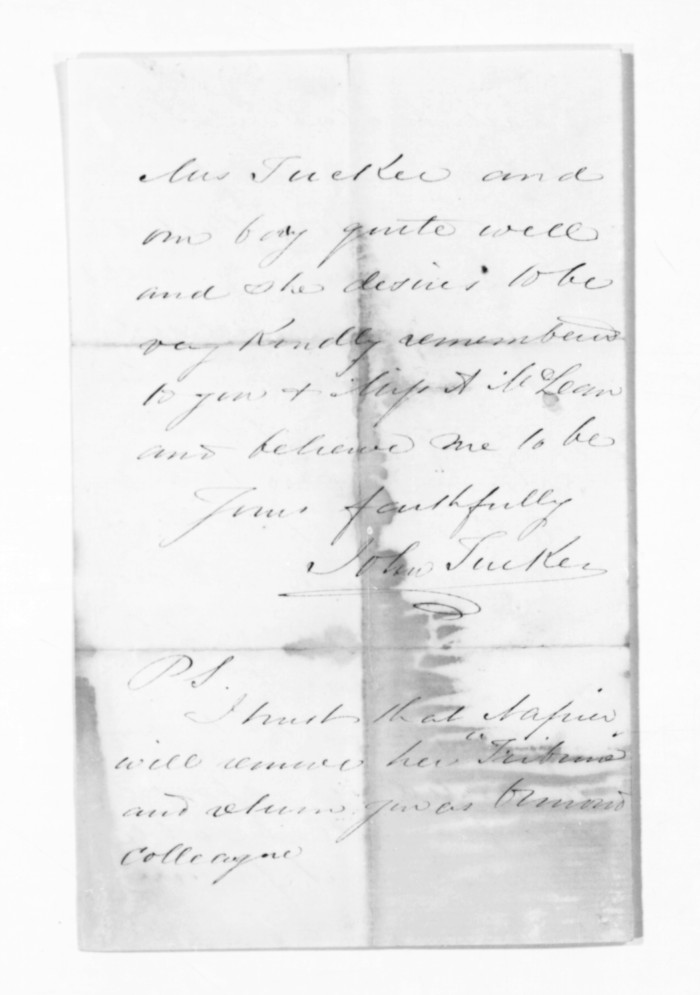 Mrs Tucker and
our boy quite well
and she desires to be
very Kindly remembered
to you & Miss A McLean
and believe me to be
Yours faithfully
John Tucker
PS.
I trust that Napier
will remove her "Tribune"
and return you as Ormond
colleague